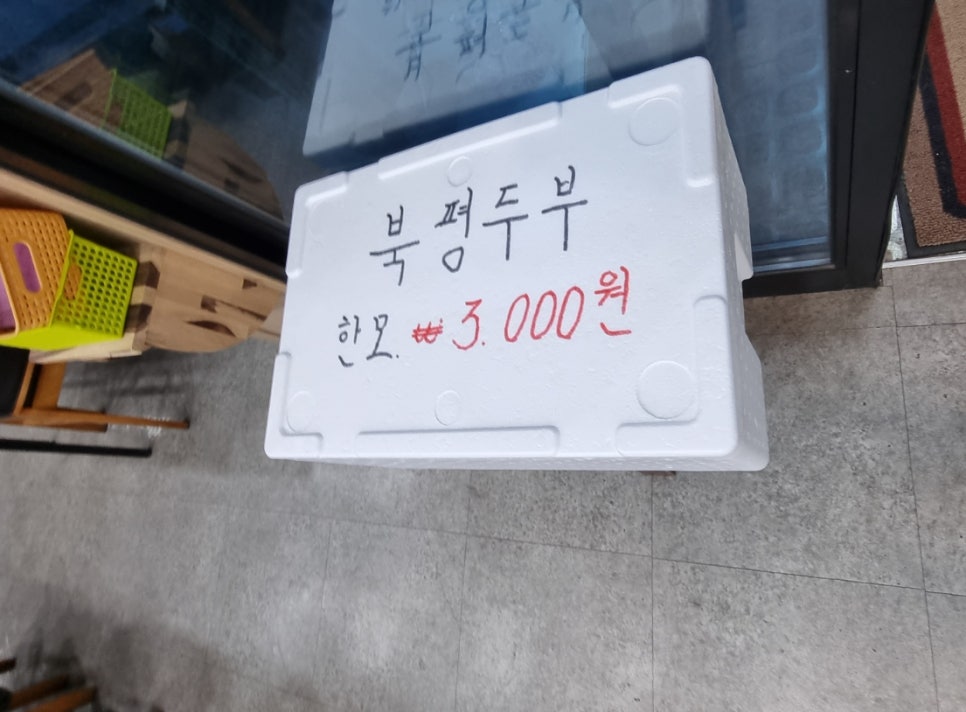 북평두부
한모. ₩3.000원